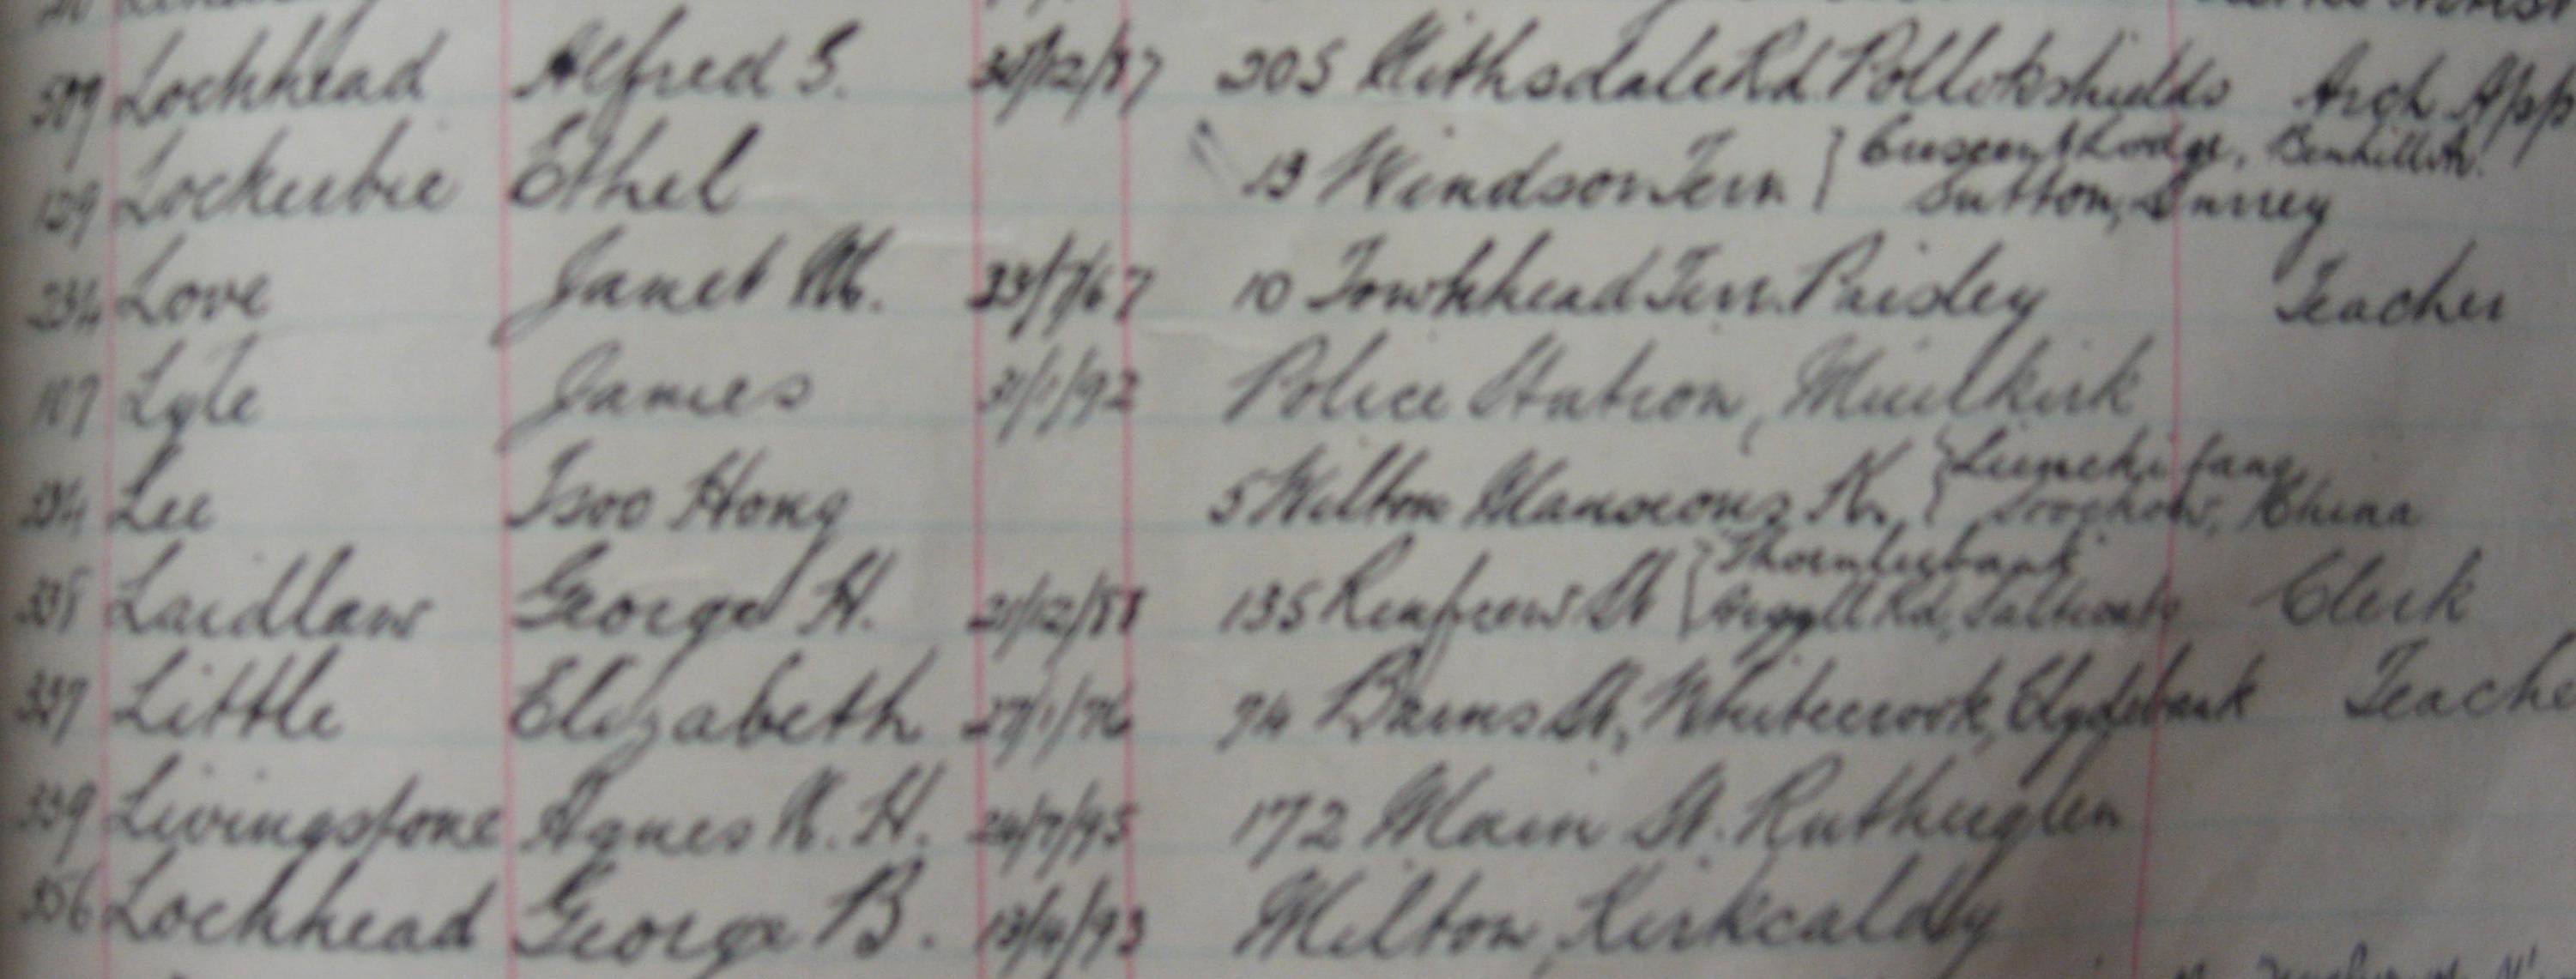 509 Lochhead Alfred S. 30/12/87 205 Nithsdale Rd. Pollokshields Arch. App
129 Lockerbie Ethel 13 Windsor Terr. } Crescent Lodge, Benhill
Sutton, Surrey
Love Janet M. 23/7/67 10 Townhead Terr. Paisley Teacher
107 Lyle James 31/1/92 Police Station, Muirkirk
Lee Tsoo Hong 5 Wilton Mansions N. {
Soochow, China
335 Laidlaw George H. 21/12/88 135 Renfrew St { Thornliebank
Argyll Rd, Saltcoats Clerk
337 Little Elizabeth 27/1/76 94 Barns St, Whitecrook, Clydebank Teache
339 Livingstone Agnes K. H. 24/7/95 172 Main St. Rutherglen
356 Lochhead George B. 13/4/93 Milton, Kirkcaldy